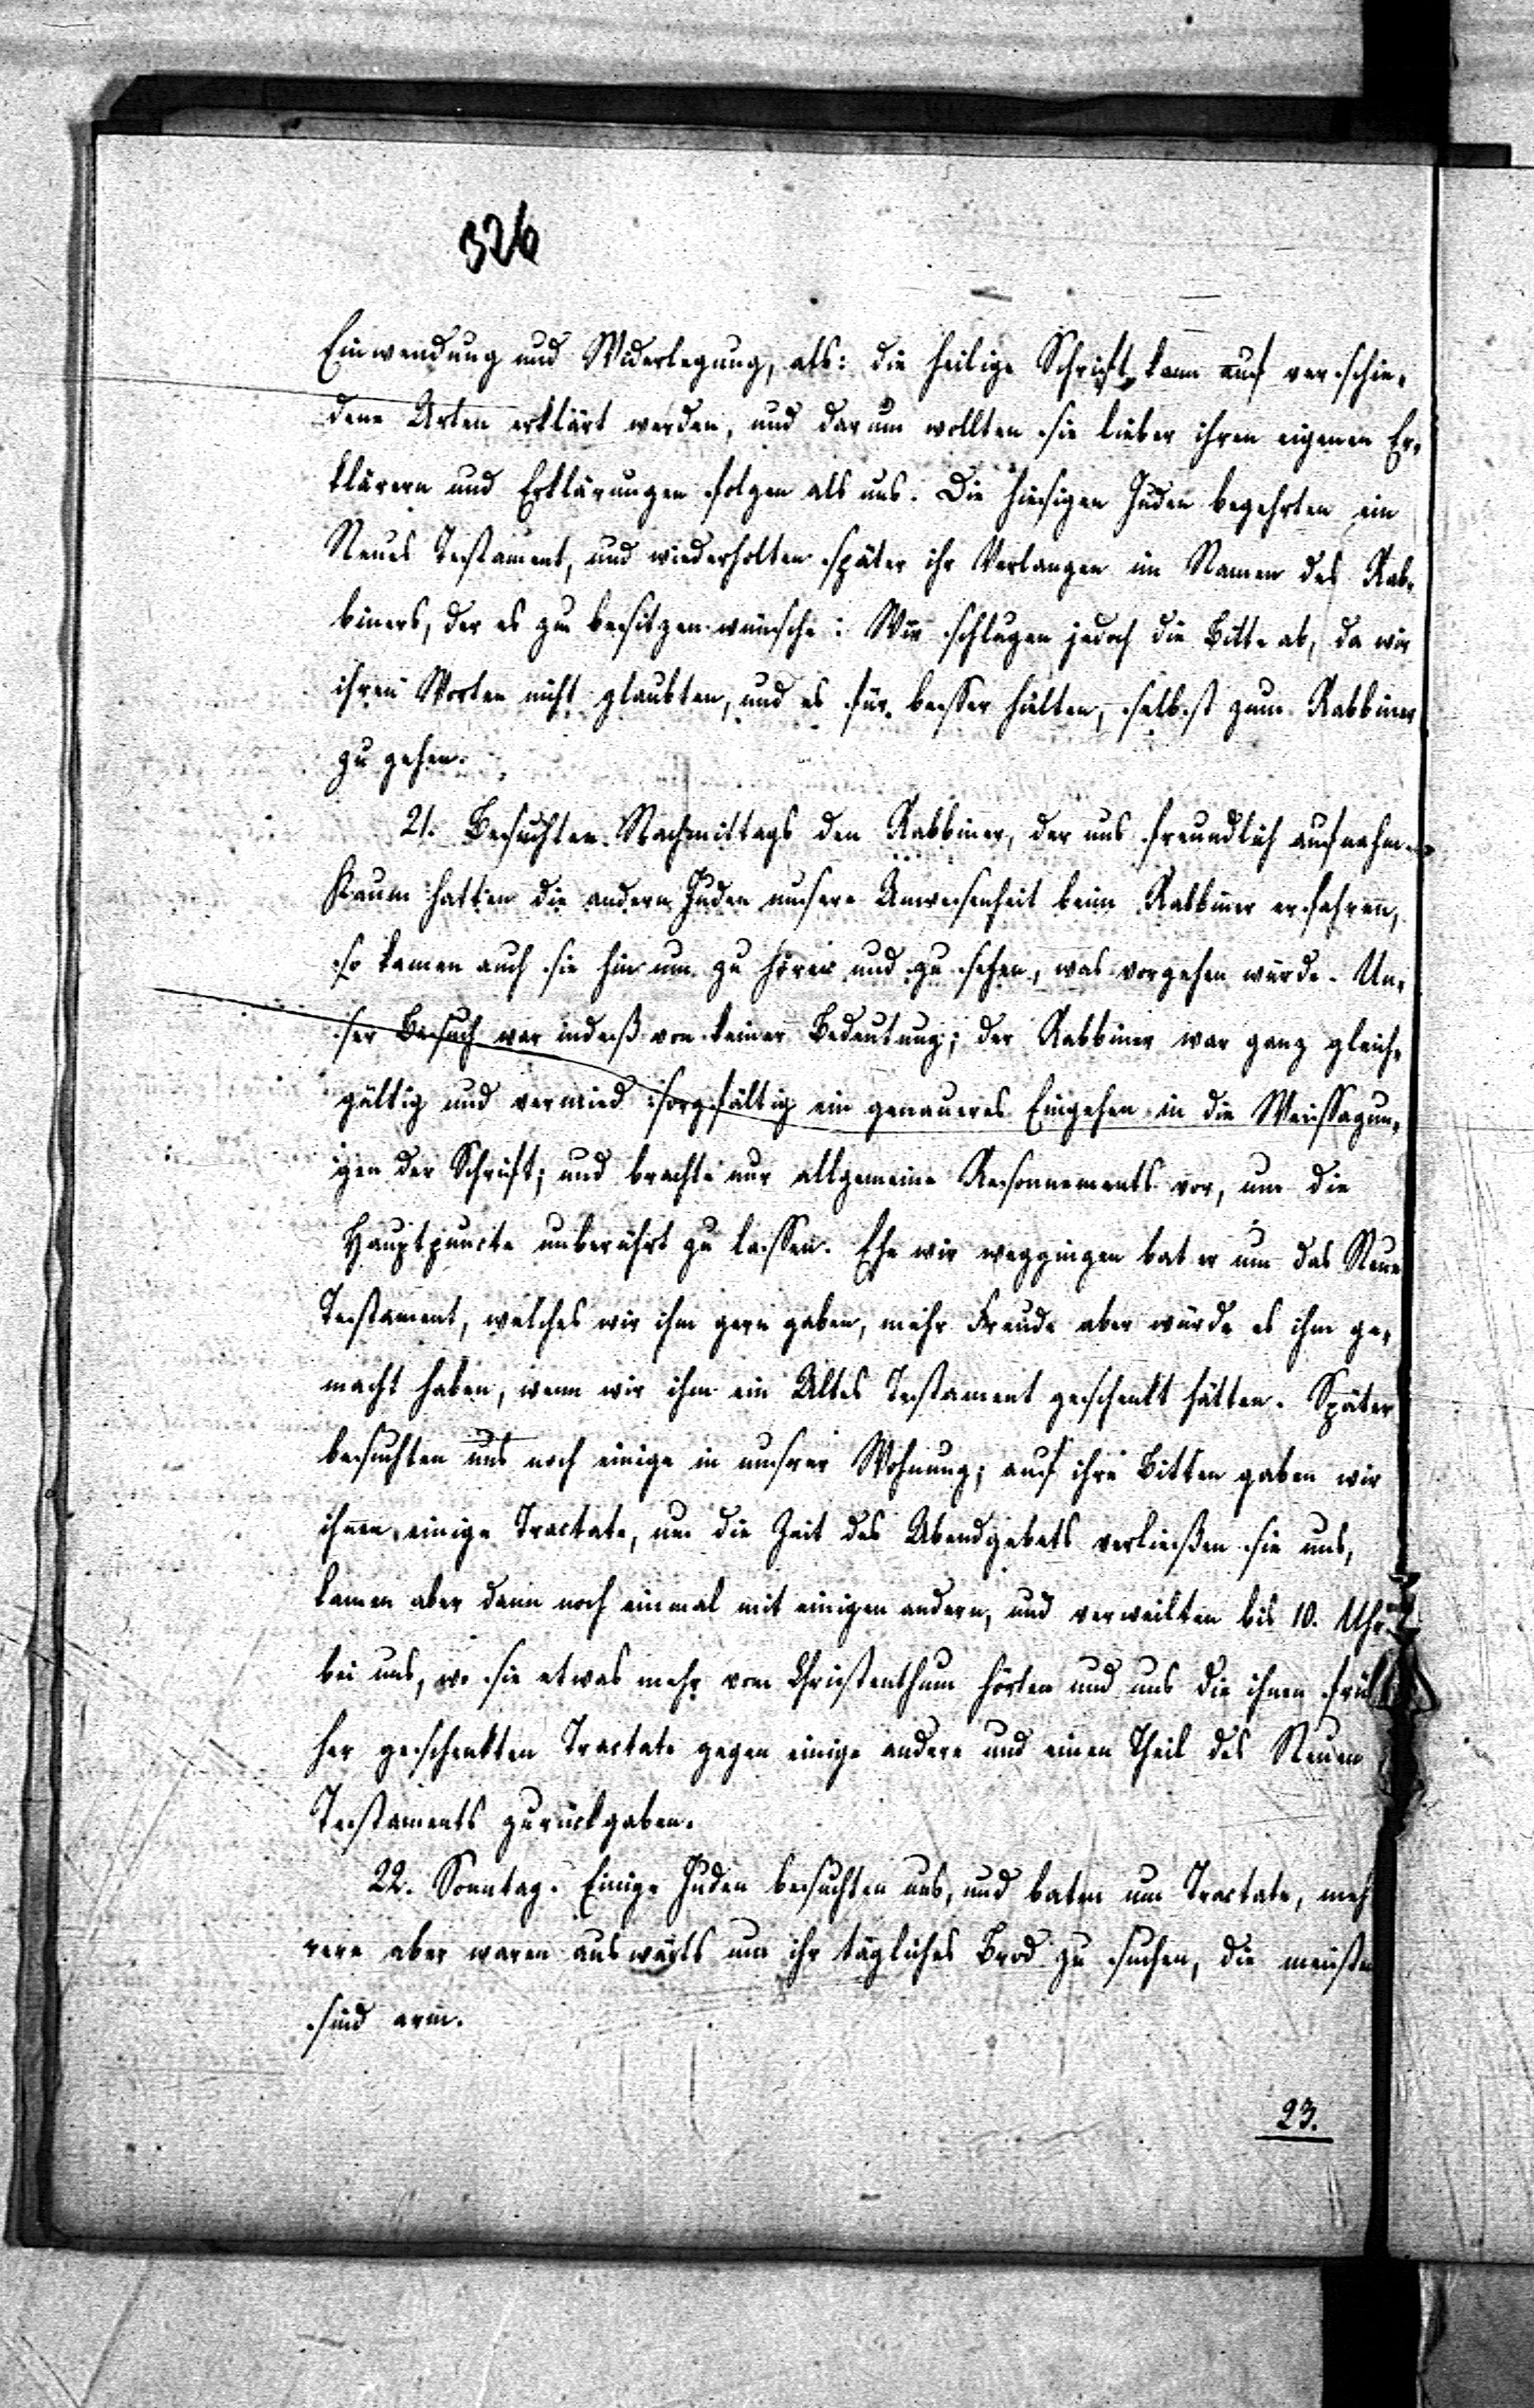 326
Einwendung und Widerlegung, als: die heilige Schrift kann auf verschie-
dene Arten erklärt werden, und darum wollten sie lieber ihren eigenen Er-
klärern und Erklärungen folgen als uns. Die hiesigen Juden begehrten ein
Neues Testament, und wiederholten später ihr Verlangen im Namen des Rab-
biners, der es zu besitzen wünsche: Wir schlugen jedoch die Bitte ab, da wir
ihren Worten nicht glaubten, und es für besser hielten, selbst zum Rabbiner
zu gehen.
21. Besuchten Nachmittags den Rabbiner, der uns freundlich aufnahm.
Kaum hatten die andern Juden unsere Anwesenheit beim Rabbiner erfahren,
so kamen auch sie hin um zu hören und zu sehen, was vorgehen würde. Un-
ser Besuch war indeß von keiner Bedeutung; der Rabbiner war ganz gleich-
gültig und vermied sorgfältig ein genaueres Eingehen in die Weissagun-
gen der Schrift; und brachte nur allgemeine Resonnements vor, um die
Hauptpuncte unberührt zu lassen. Ehe wir weggingen bat er um das Neue
Testament, welches wir ihm gern gaben, mehr Freude aber würde es ihm ge-
macht haben, wenn wir ihm ein Altes Testament geschenkt hätten. Später
besuchten uns noch einige in unsrer Wohnung; auf ihre Bitten gaben wir
ihnen einige Tractate, um die Zeit des Abendgebets verließen sie uns,
kamen aber dann noch einmal mit einigen andern, und verweilten bis 10. Uhr
bei uns, wo sie etwas mehr vom Christenthum hörten und uns die ihnen frü-
her geschenkten Tractate gegen einige andere und einen Theil des Neuen
Testaments zurückgaben.
22. Sonntag. Einige Juden besuchten uns, und baten um Tractate, meh
rere aber waren auswärts um ihr tägliches Brod zu suchen, die meisten
sind arm.
23.